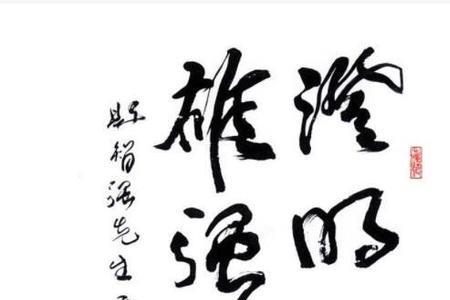 澄明
雄强
智强先生